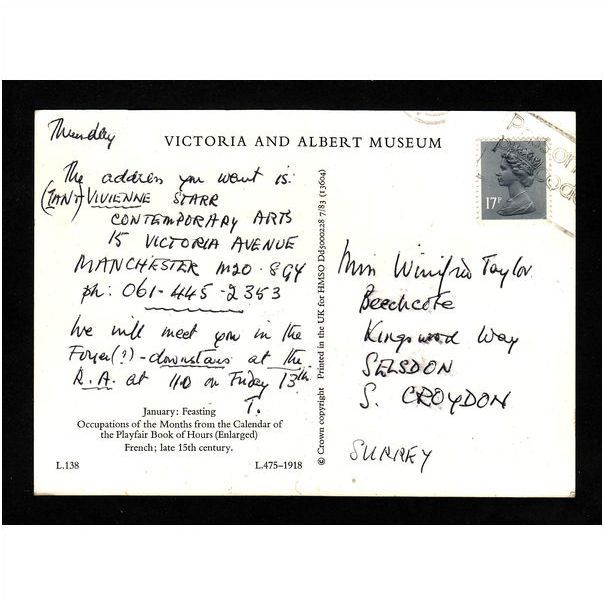 Thursday
VICTORIA AND ALBERT MUSEUM
The address you want is:
(IAN + VIVIENNE STARR
CONTEMPORARY ARTS
15 VICTORIA AVENUE
MANCHESTER M20 - 8GY
ph: 061-445-2353
We will meet you in the
Foyer(?) - downstairs at the
R.A. at 11.0 on Friday 13th
T.
January: Feasting
Occupations of the Months from the Calendar of
the Playfair Book of Hours (Enlarged)
French; late 15th century.
L.138
L.475-1918
© Crown copyright Printed in the UK for HMSO Dd5000228 7/83 (13604)
17P
Miss Winifred Taylor
Beechcote
Kingswood Way
SELSDON
S. CROYDON
SURREY